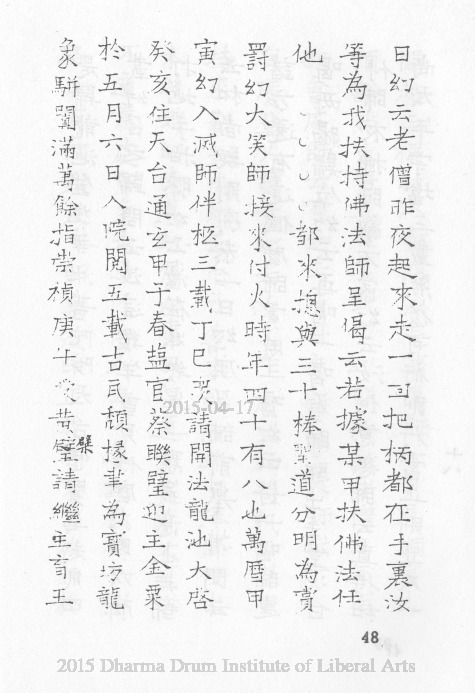 日幻云老僧昨夜起來走一回把柄都在手裏汝
等為我扶持佛法師呈偈云若據某甲扶佛法任
他 都來總與三十棒 道分明為賞
罰幻大笑師接來付火時年四十有八也萬曆甲
寅幻入滅師伴柩三載丁巳 請開法龍池大啓
癸亥住天台通玄甲子春鹽官蔡聯璧迎主金粟
於五月六日入院閱五載古瓦頹椽聿為寶坊龍
象駢闐滿萬餘指崇禎庚午 黃璧請繼主育王
檗
2015-04-17
48
2015 Dharma Drum Institute of Liberal Arts